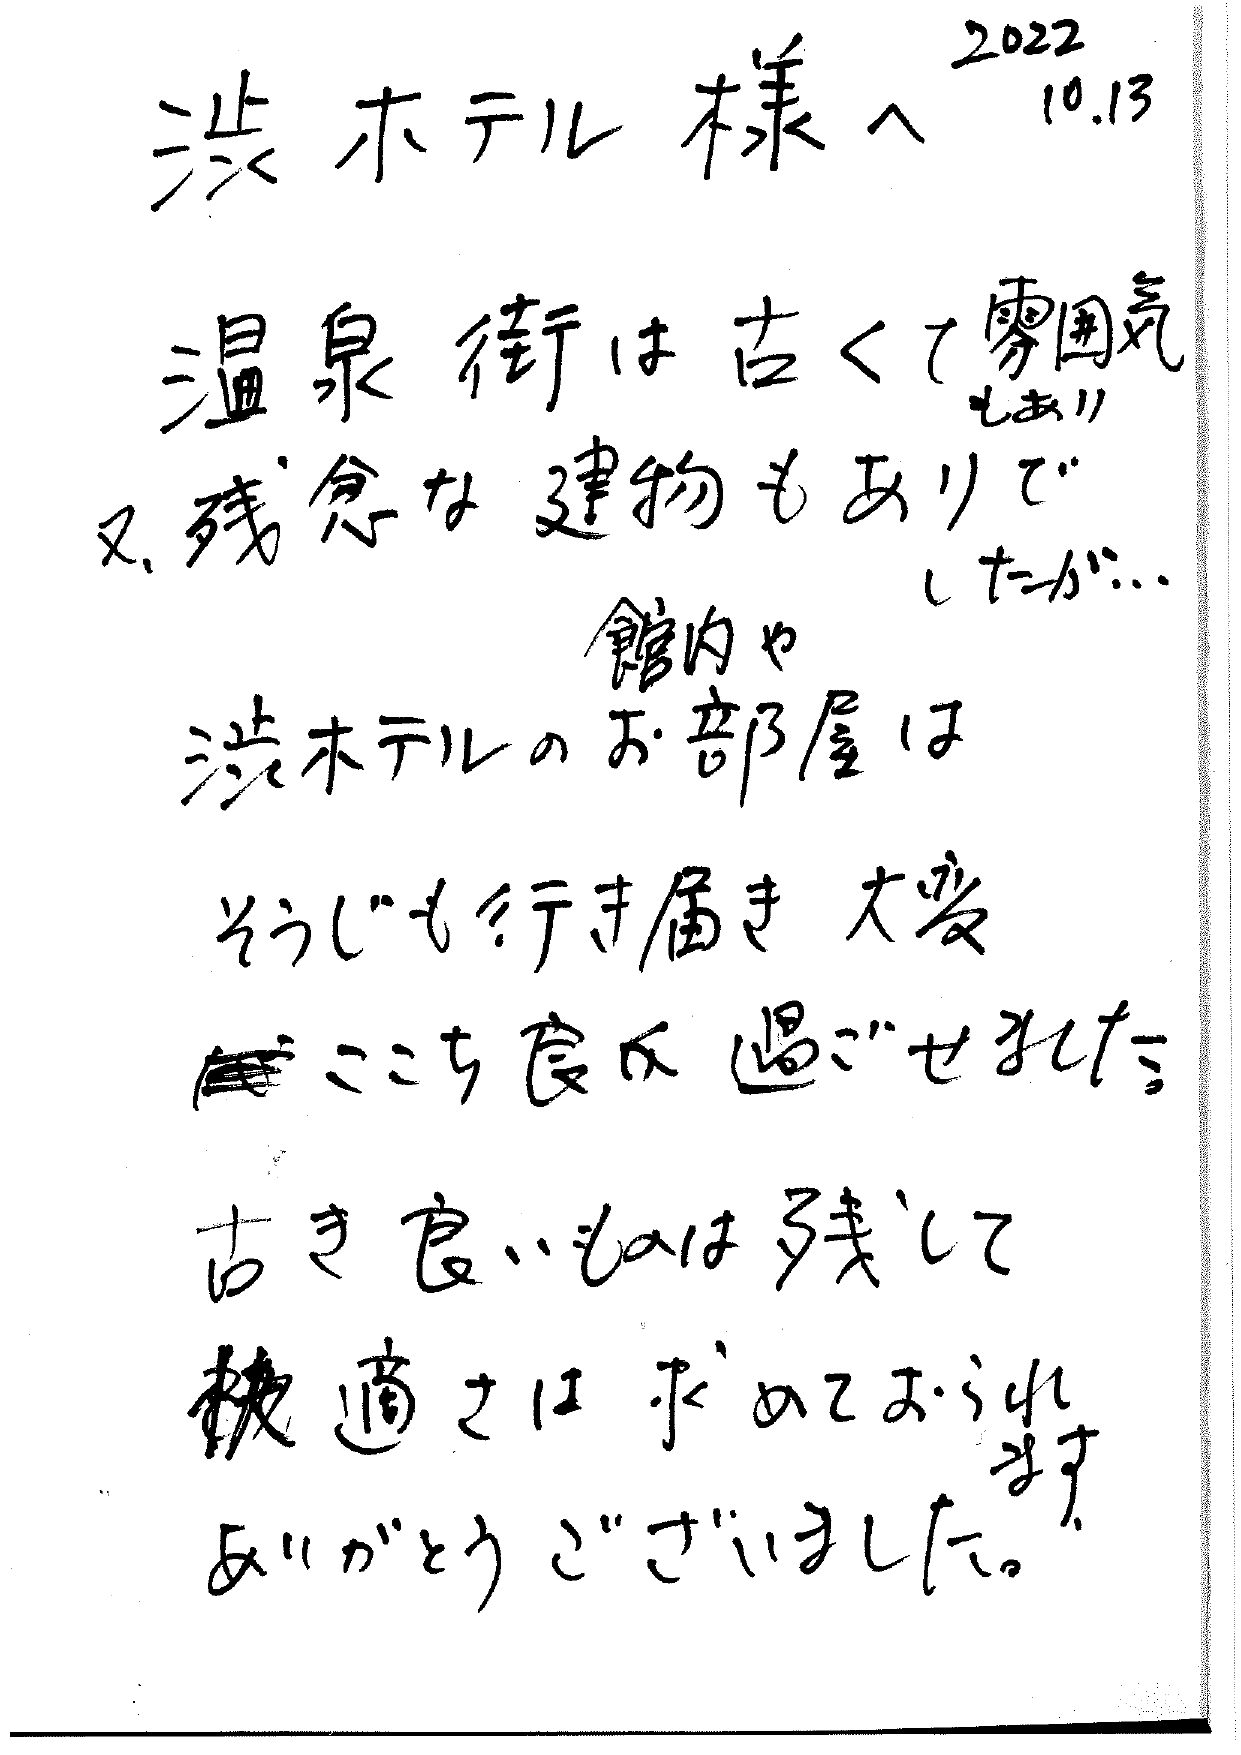 2022
10.13
渋ホテル様へ
温泉街は古くて雰囲気
もあり
又、残念な建物もありで
したが…
館内や
渋ホテルのお部屋は
そうじも行き届き大変
ここち良く過ごせました。
古き良いものは残して
快適さは求めておられ
ます。
ありがとうございました。